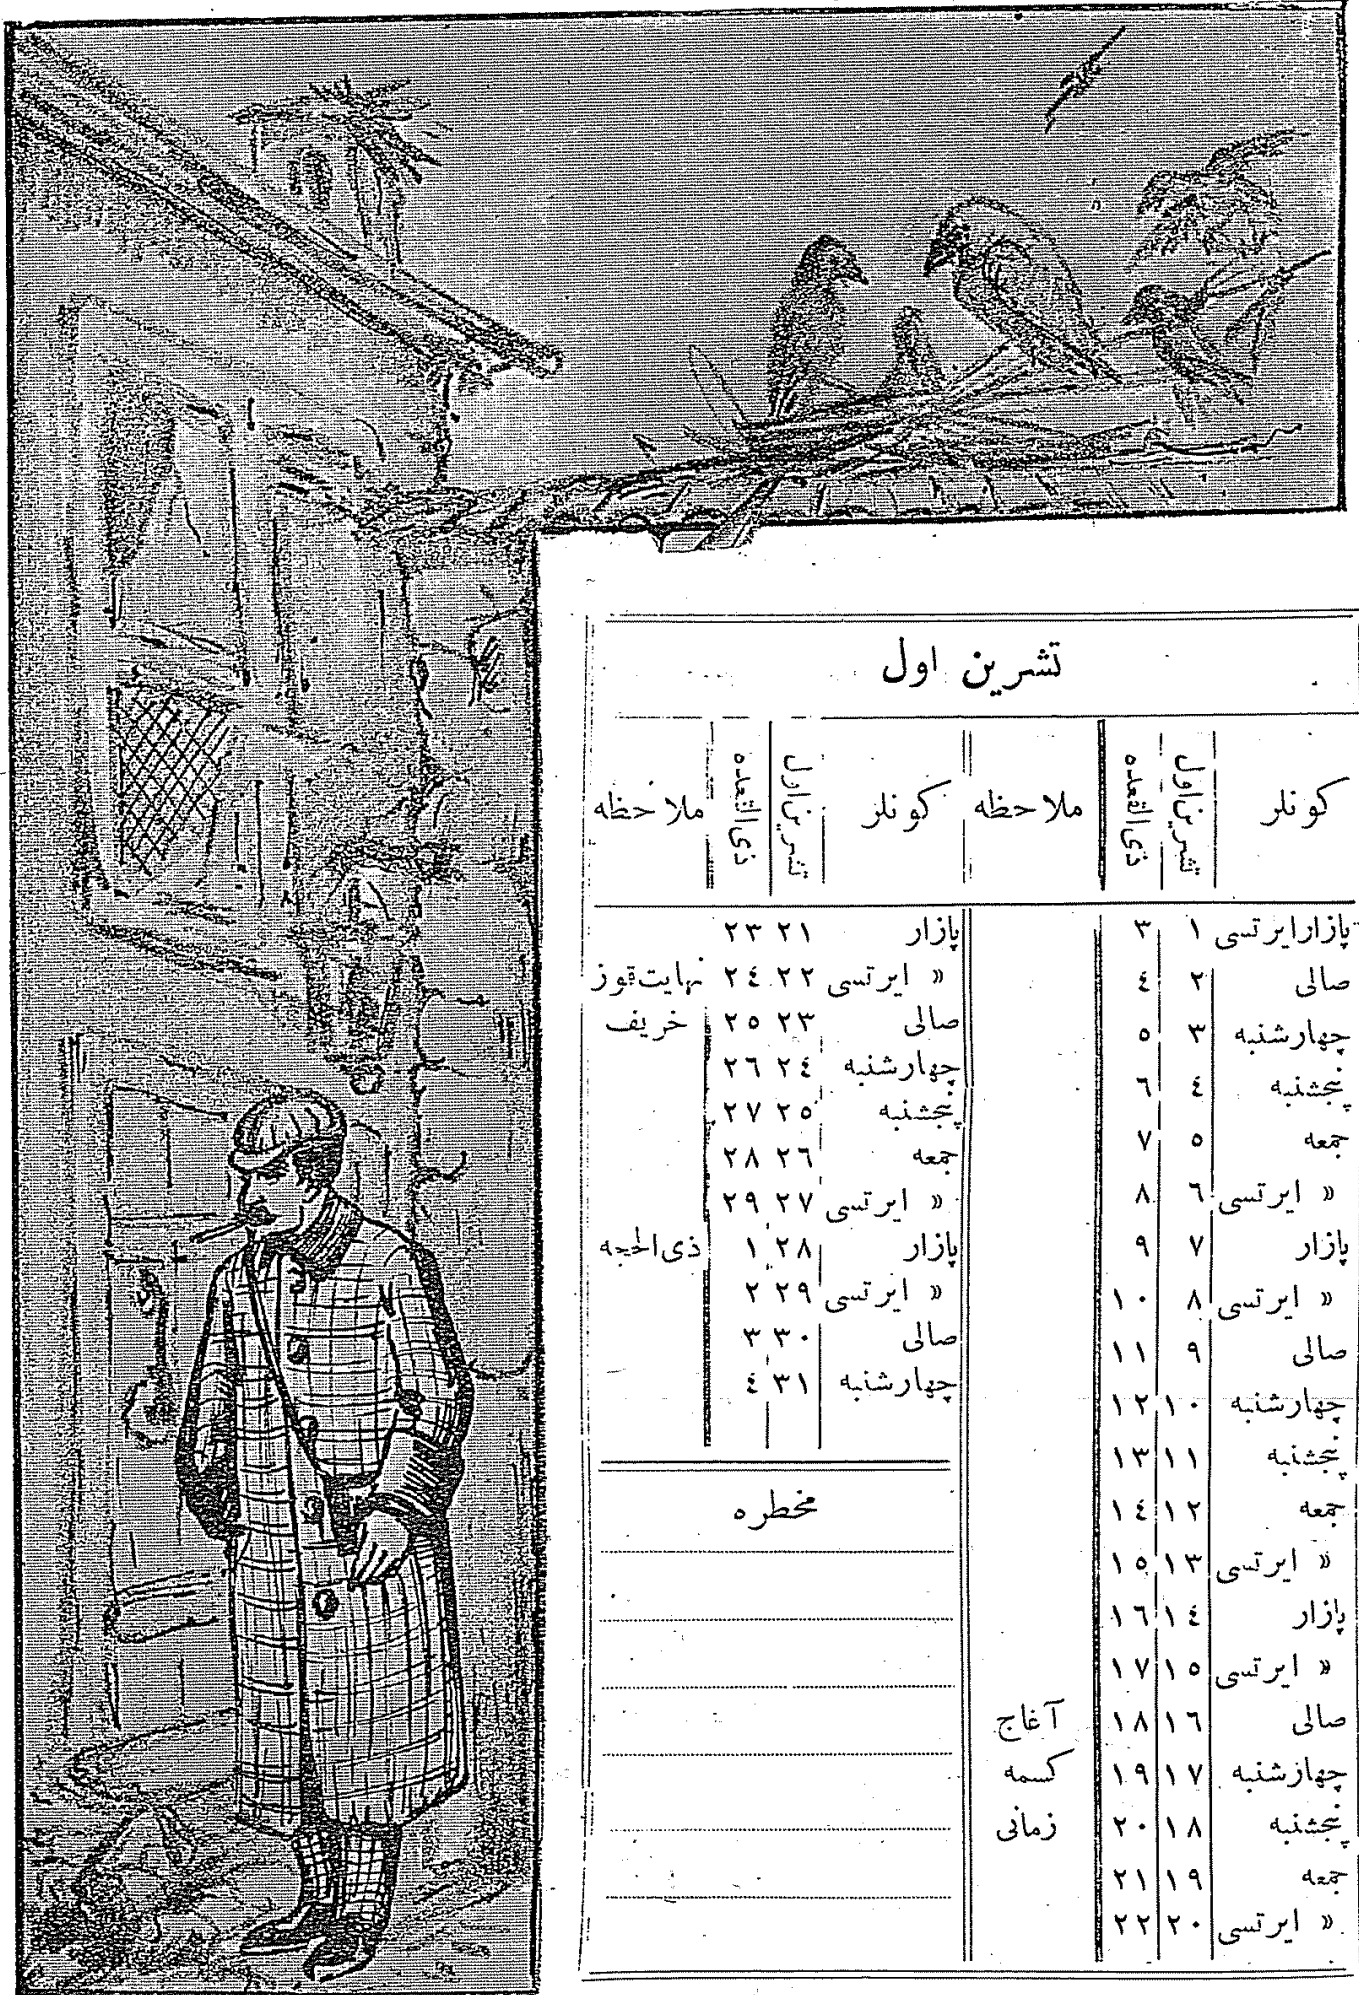 تشرین اول
كونلر تشرین اول ذی القعده ملاحظه
پازارایرتسی ١ ٣
صالی ٢ ٤
چهارشنبه ٣ ٥
پنجشنبه ٤ ٦
جمعه ٥ ٧
« ایرتسی ٦ ٨
پازار ٧ ٩
« ایرتسی ٨ ١٠
صالی ٩ ١١
چهارشنبه ١٠ ١٢
پنجشنبه ١١ ١٣
جمعه ١٢ ١٤
« ایرتسی ١٣ ١٥
پازار ١٤ ١٦
« ایرتسی ١٥ ١٧
صالی ١٦ ١٨ آغاج
چهارشنبه ١٧ ١٩ كسمه
پنجشنبه ١٨ ٢٠ زمانی
جمعه ١٩ ٢١
« ایرتسی ٢٠ ٢٢
كونلر تشرین اول ذی القعده ملاحظه
پازار ٢١ ٢٣
« ایرتسی ٢٢ ٢٤ نهایت قوز
صالی ٢٣ ٢٥ خریف
چهارشنبه ٢٤ ٢٦
پنجشنبه ٢٥ ٢٧
جمعه ٢٦ ٢٨
« ایرتسی ٢٧ ٢٩
پازار ٢٨ ١ ذی الحجه
« ایرتسی ٢٩ ٢
صالی ٣٠ ٣
چهارشنبه ٣١ ٤
مخطره